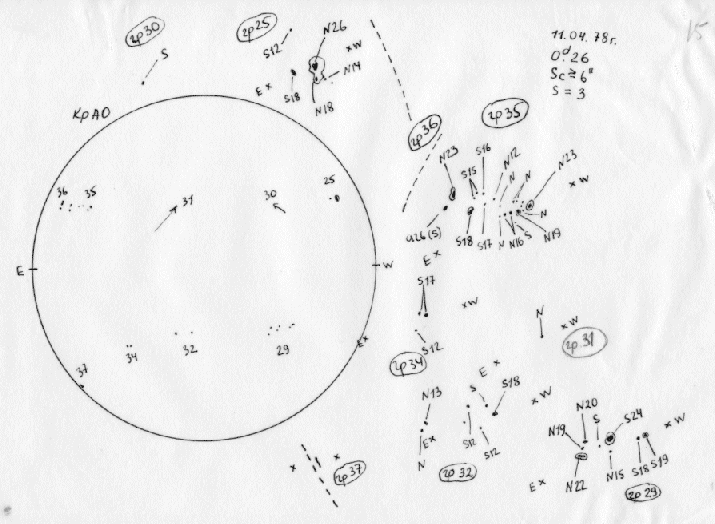 гр30
S
КрАО
гр25
S12
N26
×W
N14
E×
S18
N18
11.04.78г.
15
S = 3
гр36
гр35
N23
S16
S15
N12
N
N
N23
×W
S18
S17
N
N16
S
N
N19
E×
36
35
31
30
25
E
W
37
34
32
29
E×
S17
×W
S12
гр34
N
×W
гр31
N13
E×
N
S
E×
S18
×W
S12
S12
гр32
N20
S
S24
×W
N19
N22
N15
S18
S19
E×
гр29
×
×
гр37